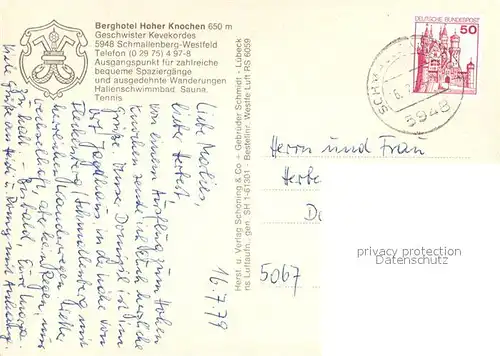 Berghotel Hoher Knochen 650 m
Geschwister Kevekordes
5948 Schmallenberg-Westfeld
Telefon (0 29 75) 4 97-8
Ausgangspunkt für zahlreiche
bequeme Spaziergänge
und ausgedehnte Wanderungen
Hallenschwimmbad, Sauna,
Tennis
Herst. u. Verlag Schöning & Co + Gebrüder Schmidt - Lübeck
ns Luftaufn., gen. SH 1-81301 - Bestellnr. Westfe Luft RS 6059
DEUTSCHE BUNDESPOST
50
SCHMA
5948
16.7.79
Liebe Marlies,
lieber Herbert,
von einem Ausflug zum Hohen
Knochen sende ich Euch herzliche
Grüße. Unser Domizil ist im
Jagdhaus in der Nähe von
Fleckenberg Schmallenberg mit
herrlichen Wanderwegen. Wetter
wechselhaft, aber kein Regen, nur
kalt. Bis bald, Eure
Viele Grüße auch u.
Herrn und Frau
Herbe
5067
privacy protection
Datenschutz